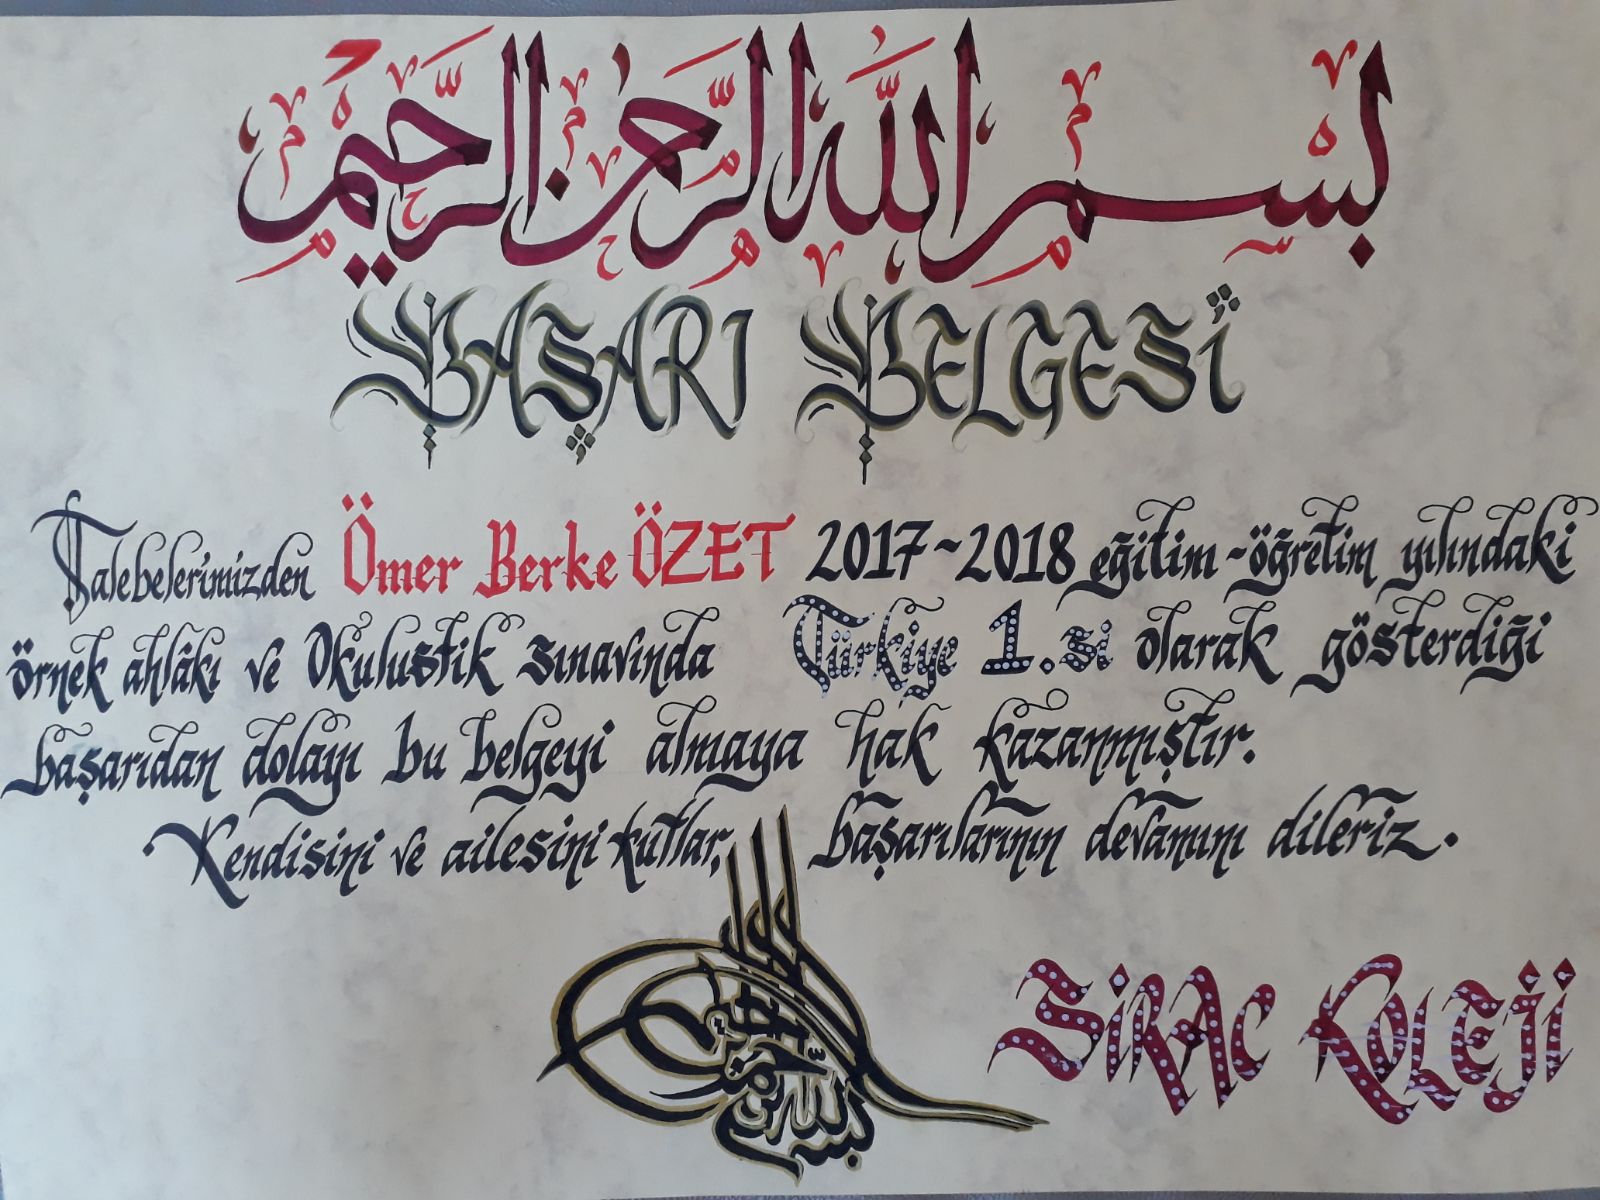 بسم الله الرحمن الرحيم
BAŞARI BELGESİ
Talebelerimizden Ömer Berke ÖZET 2017~2018 eğitim-öğretim yılındaki
örnek ahlâkı ve Okulustik sınavında Türkiye 1.si olarak gösterdiği
başarıdan dolayı bu belgeyi almaya hak kazanmıştır.
Kendisini ve ailesini kutlar, başarılarının devamını dileriz.
بسم الله الرحمن الرحيم
SİRAC KOLEJİ